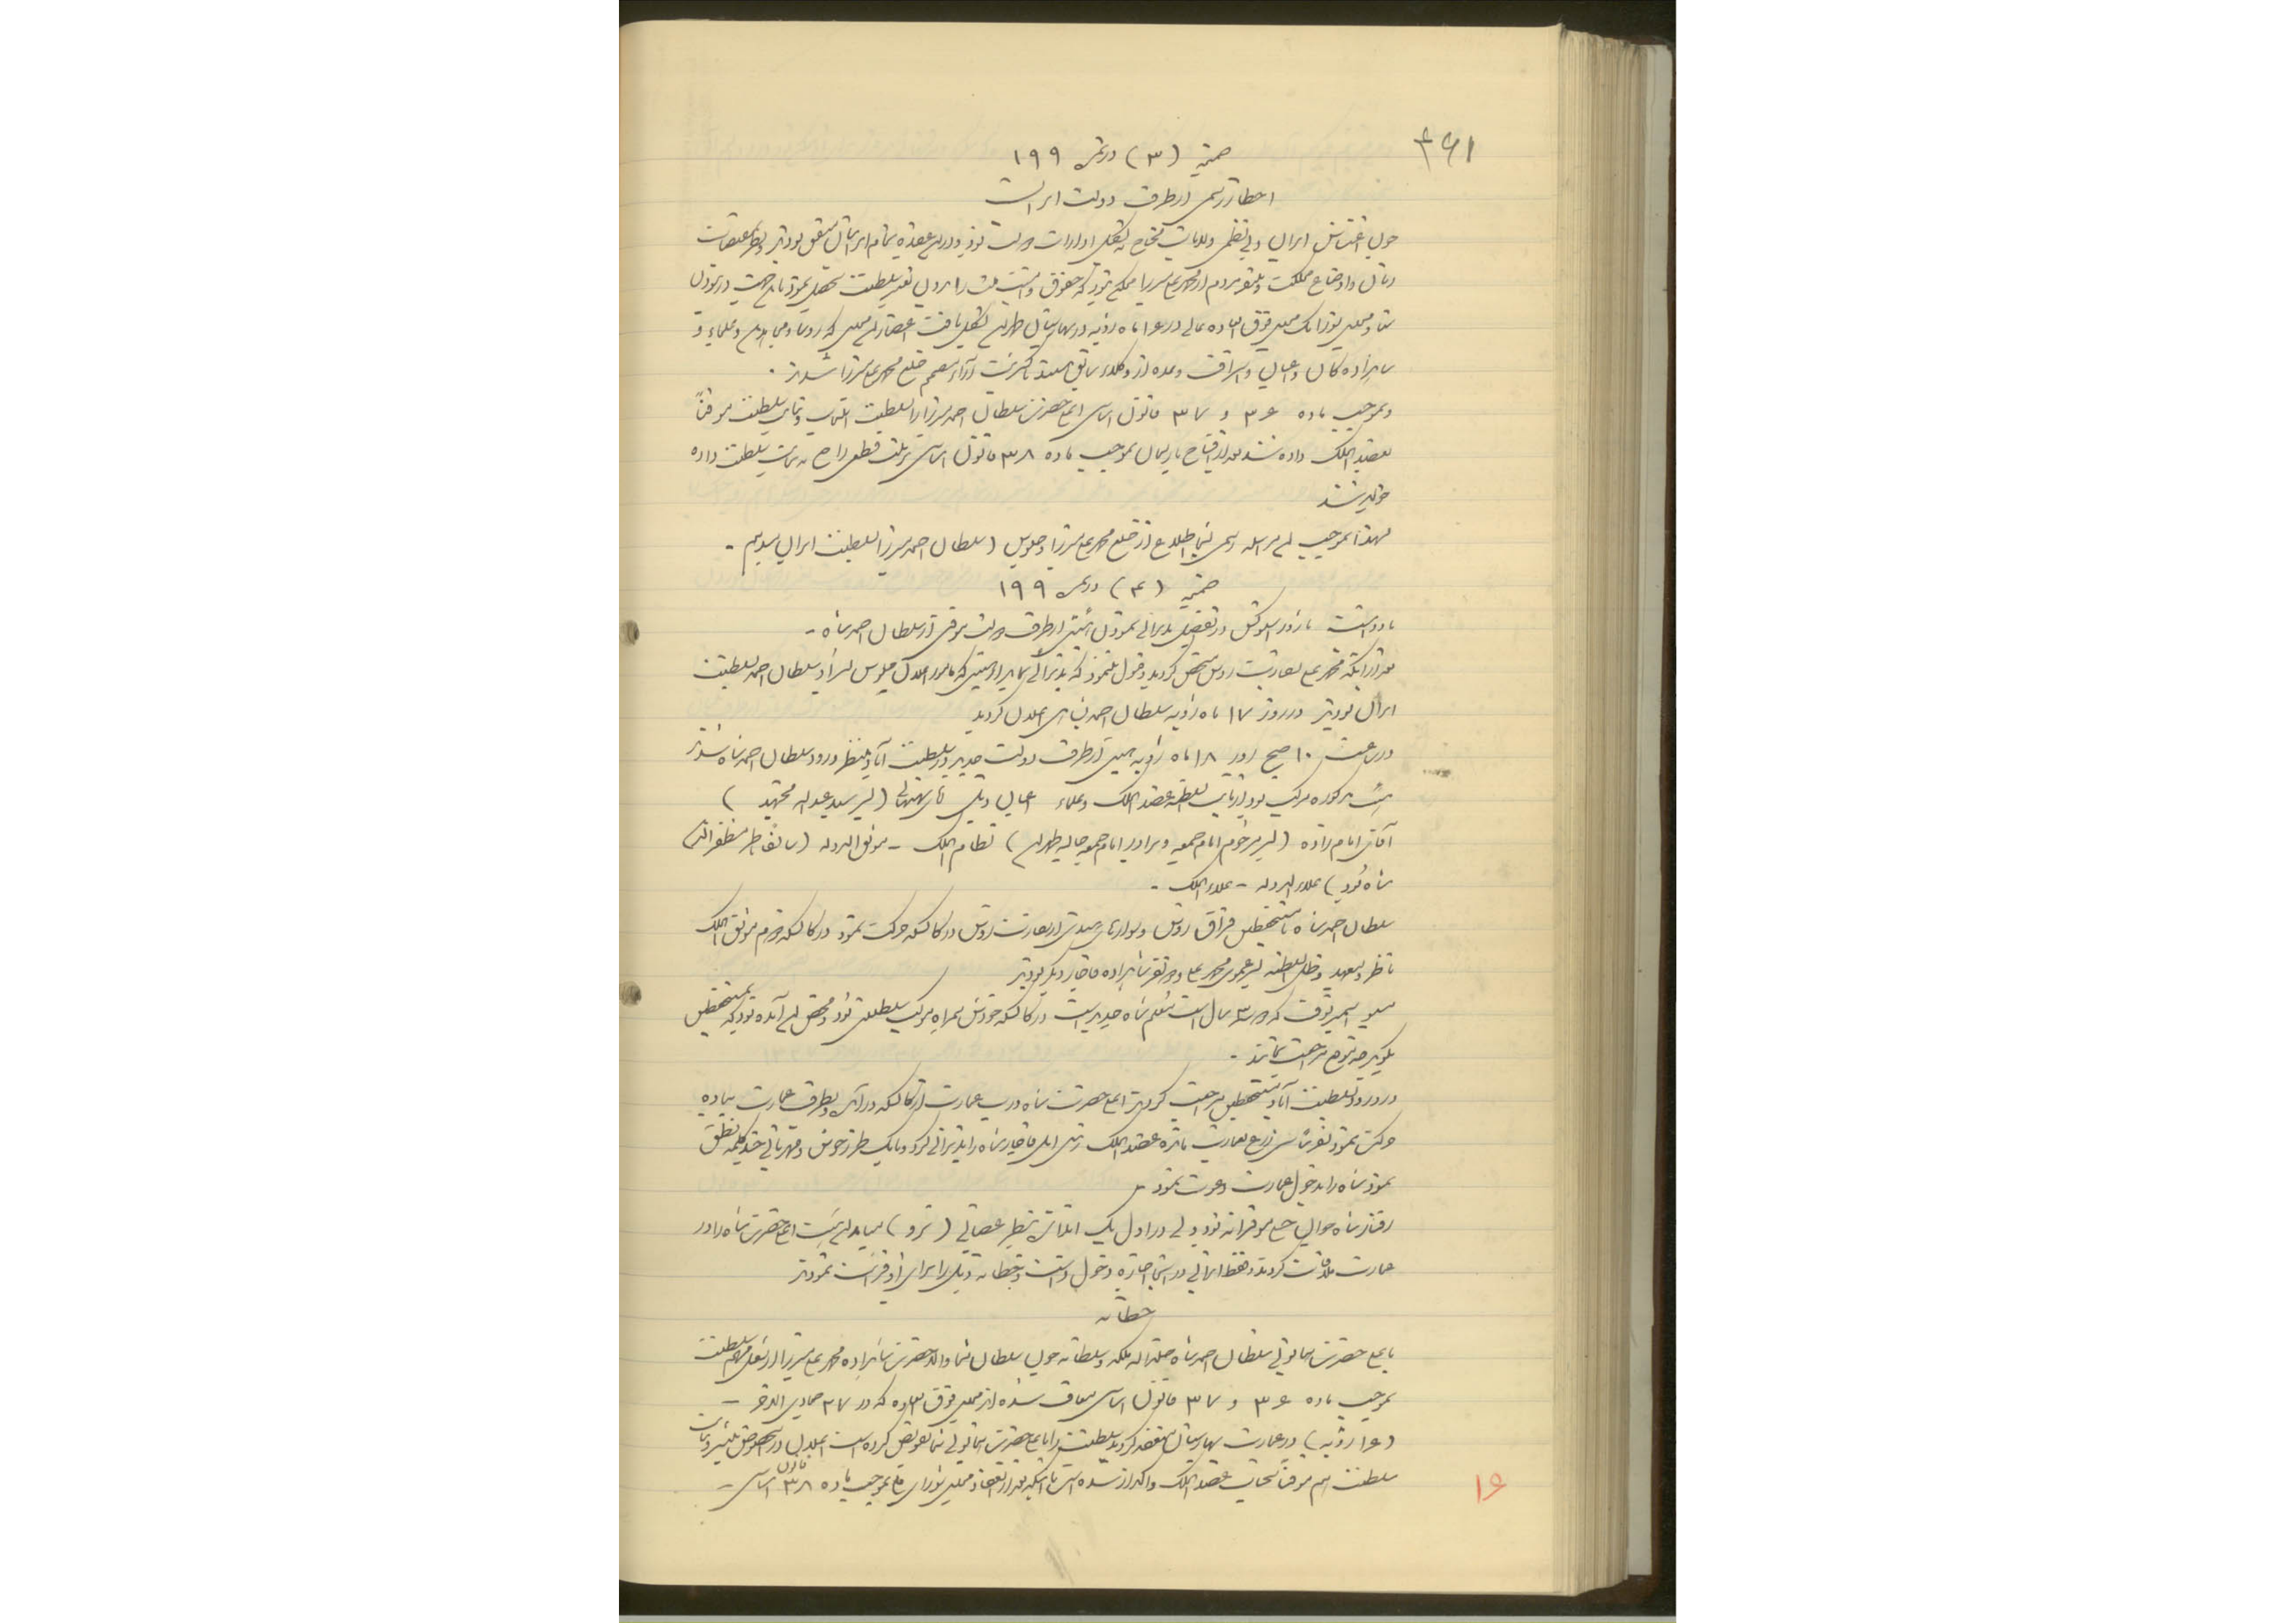 ۴۶۱
ضمیمه (۳) در نمره ۱۹۹
اخطار رسمی از طرف دولت ایران است
چون اغتشاش ایران و بی نظمی ولایات محتاج به تشکیل ادارات دولت بود و در این عقیده تمام ایرانیان متفق بودند و بنظر تحقیقات
زمان و اوضاع مملکت و تنفر مردم از محمد علی میرزا ممکن نبود که حقوق و امنیت ملت را بدون تغییر سلطنت تحصیل نمود باین جهت در نبودن
سنا و مجلس شورا یک مجلس فوق العاده عالی در ۱۶ ماه ژویه در بهارستان طهران تشکیل یافت اعضاء این مجلس که رؤسا و مجاهدین و علماء و
شاهزاده گان و اعیان و اشراف و عده از وکلاء سابق هستند باکثریت آراء مصمم خلع محمد علی میرزا شدند.
و بموجب ماده ۳۶ و ۳۷ قانون اساسی اعلیحضرت سلطان احمد میرزا را بسلطنت انتخاب و نیابت سلطنت موقتاً
بعضد الملک داده شد بعد از افتتاح پارلمان بموجب ماده ۳۸ قانون اساسی ترتیب قطعی راجع به نیابت سلطنت داده
خواهد شد
لهذا بموجب این مراسله رسمی شما را اطلاع از خلع محمد علی میرزا و جلوس (سلطان احمد میرزا بسلطنت ایران میدهیم -
ضمیمه (۴) در نمره ۱۹۹
یادداشت ماژور استوکس در تفصیل پذیرائی نمودن هیئتی از طرف دولت موقتی از سلطان احمد شاه -
بعد از اینکه محمد علی بسفارت روس متحصن گردید و قبول نمود که پذیرائی نماید از هیئتی که مأمور اعلان جلوس پسر او سلطان احمد بسلطنت
ایران بودند در روز ۱۷ ماه ژویه سلطان احمد شاهی اعلان گردید
در ساعت ۱۰ صبح روز ۱۸ ماه ژویه هیئتی از طرف دولت جدید در سلطنت آباد منتظر ورود سلطان احمد شاه شدند
هیئت مذکوره مرکب بود از نایب السلطنه عضد الملک و علماء اعیان ذیل آقای بهبهانی (پسر سید عبدالله مجتهد)
آقای امام زاده (پسر مرحوم امام جمعه و برادر امام جمعه حالیه طهران) نظام الملک - موثق الدوله (سابقاً ناظر مظفرالدین
شاه بود) علاء الدوله - علاء الملک -
سلطان احمد شاه با مستحفظین قزاق روس و سوارهای هندی از سفارت روس در کالسکه حرکت نمود در کالسکه دوم موثق الملک
ناظر ولیعهد و ظل السلطنه پسر عموی محمد علی و دو نفر شاهزاده قاجار دیگر بودند
مسیو اسمیرنوف که دو سه سال است معلم شاه جدید است در کالسکه خودش همراه موکب سلطنتی بود و محض این آمده بود که بمستحفظین
بگوید چه نوع مراجعت نمایند -
در ورود بسلطنت آباد مستحفظین مراجعت کردند اعلیحضرت شاه درب عمارت از کالسکه در آمده و بطرف عمارت پیاده
حرکت نمود تقریباً سی ذرع بعمارت مانده عضد الملک رئیس ایل قاجار شاه را پذیرائی کرد و با یک طرز خوش و مهربانی چند کلمه نطق
نمود شاه را بدخول عمارت دعوت نمود -
رفتار شاه جوان خیلی موقرانه بود ولی در اول یک اندازه بنظر عصبانی (نرو) میامد این هیئت اعلیحضرت شاه را در
عمارت ملاقات کردند و فقط ایرانی در آنجا اجازه دخول داشت و خطابه ذیل را برای او قرائت نمودند
خطابه
باعلیحضرت همایونی سلطان احمد شاه خلد الله ملکه و سلطانه چون سلطان شما والد حضرت شاهزاده محمد علی میرزا از شغل مهم سلطنت
بموجب ماده ۳۶ و ۳۷ قانون اساسی معاف شده از مجلس فوق العاده که در ۲۷ جمادی الاخر -
(۱۶ ژویه) در عمارت بهارستان منعقد گردید سلطنت را باعلیحضرت همایونی شما تفویض کرده است اعلان در این خصوص منتشر و نیابت
سلطنت هم موقتاً بجناب عضد الملک واگذار شده است تا اینکه بعد از انعقاد مجلس شورای ملی بموجب ماده ۳۸ قانون اساسی -
۱۶